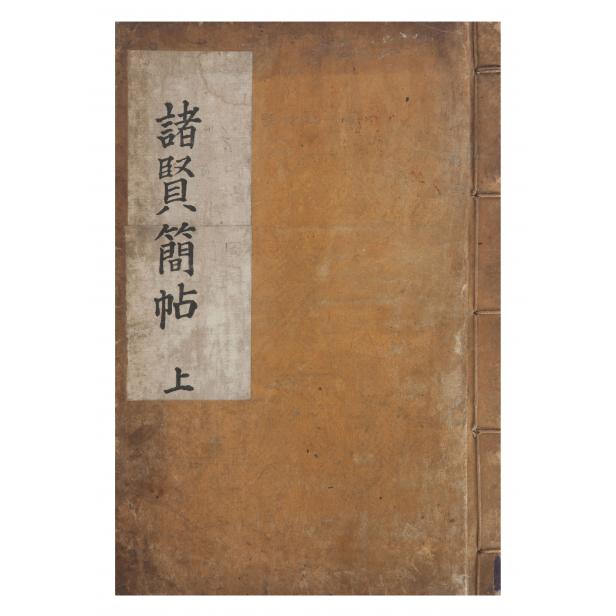 諸賢簡帖 上